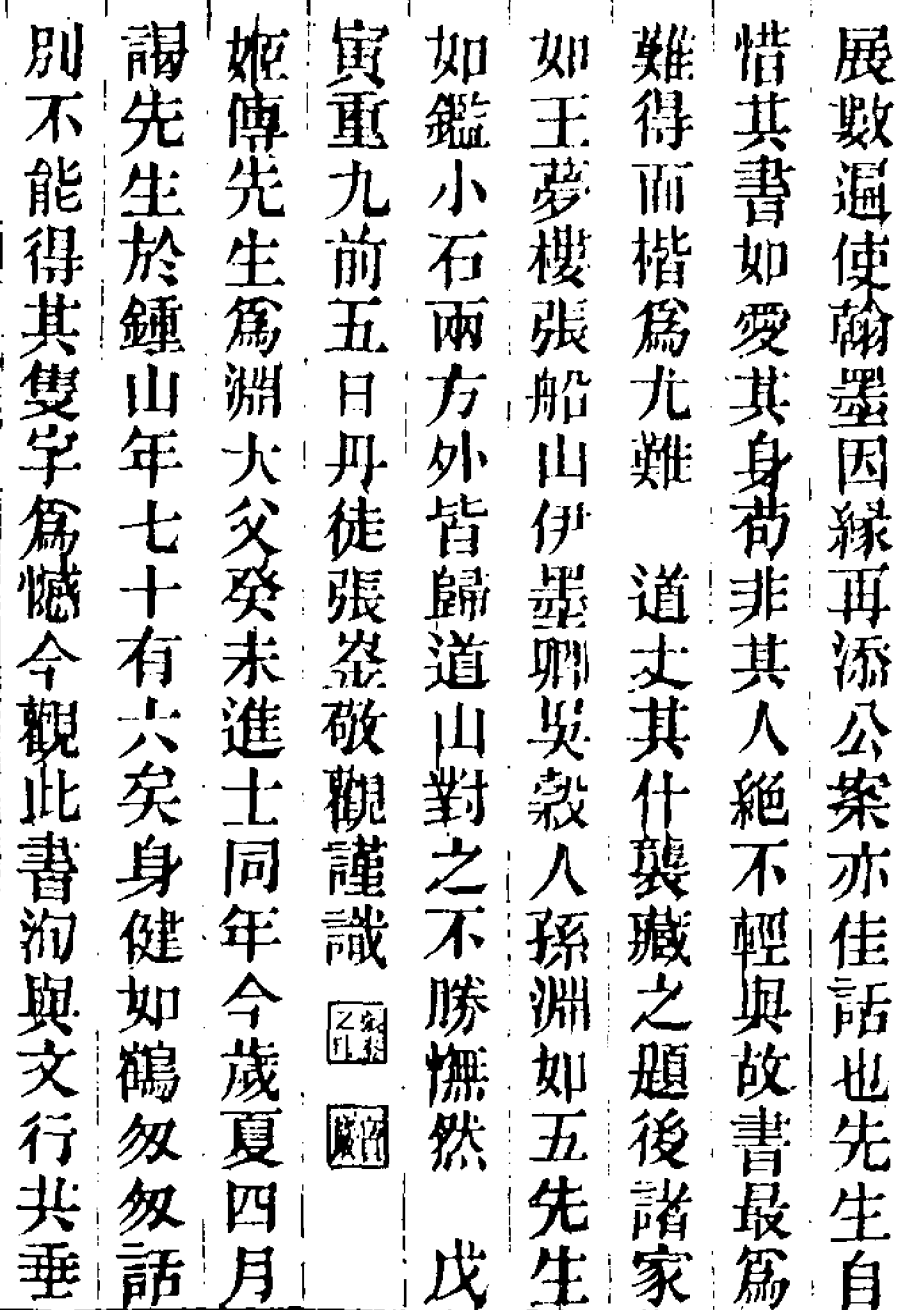 展數遍使翰墨因緣再添公案亦佳話也先生自
惜其書如愛其身苟非其人絕不輕與故書最爲
難得而楷爲尤難　道丈其什襲藏之題後諸家
如王夢樓張船山伊墨卿吳穀人孫淵如五先生
如鑑小石兩方外皆歸道山對之不勝憮然　戊
寅重九前五日丹徒張崟敬觀謹識
姬傳先生爲淵大父癸未進士同年今歲夏四月
謁先生於鍾山年七十有六矣身健如鶴匆匆話
別不能得其隻字爲憾今觀此書洵與文行共垂